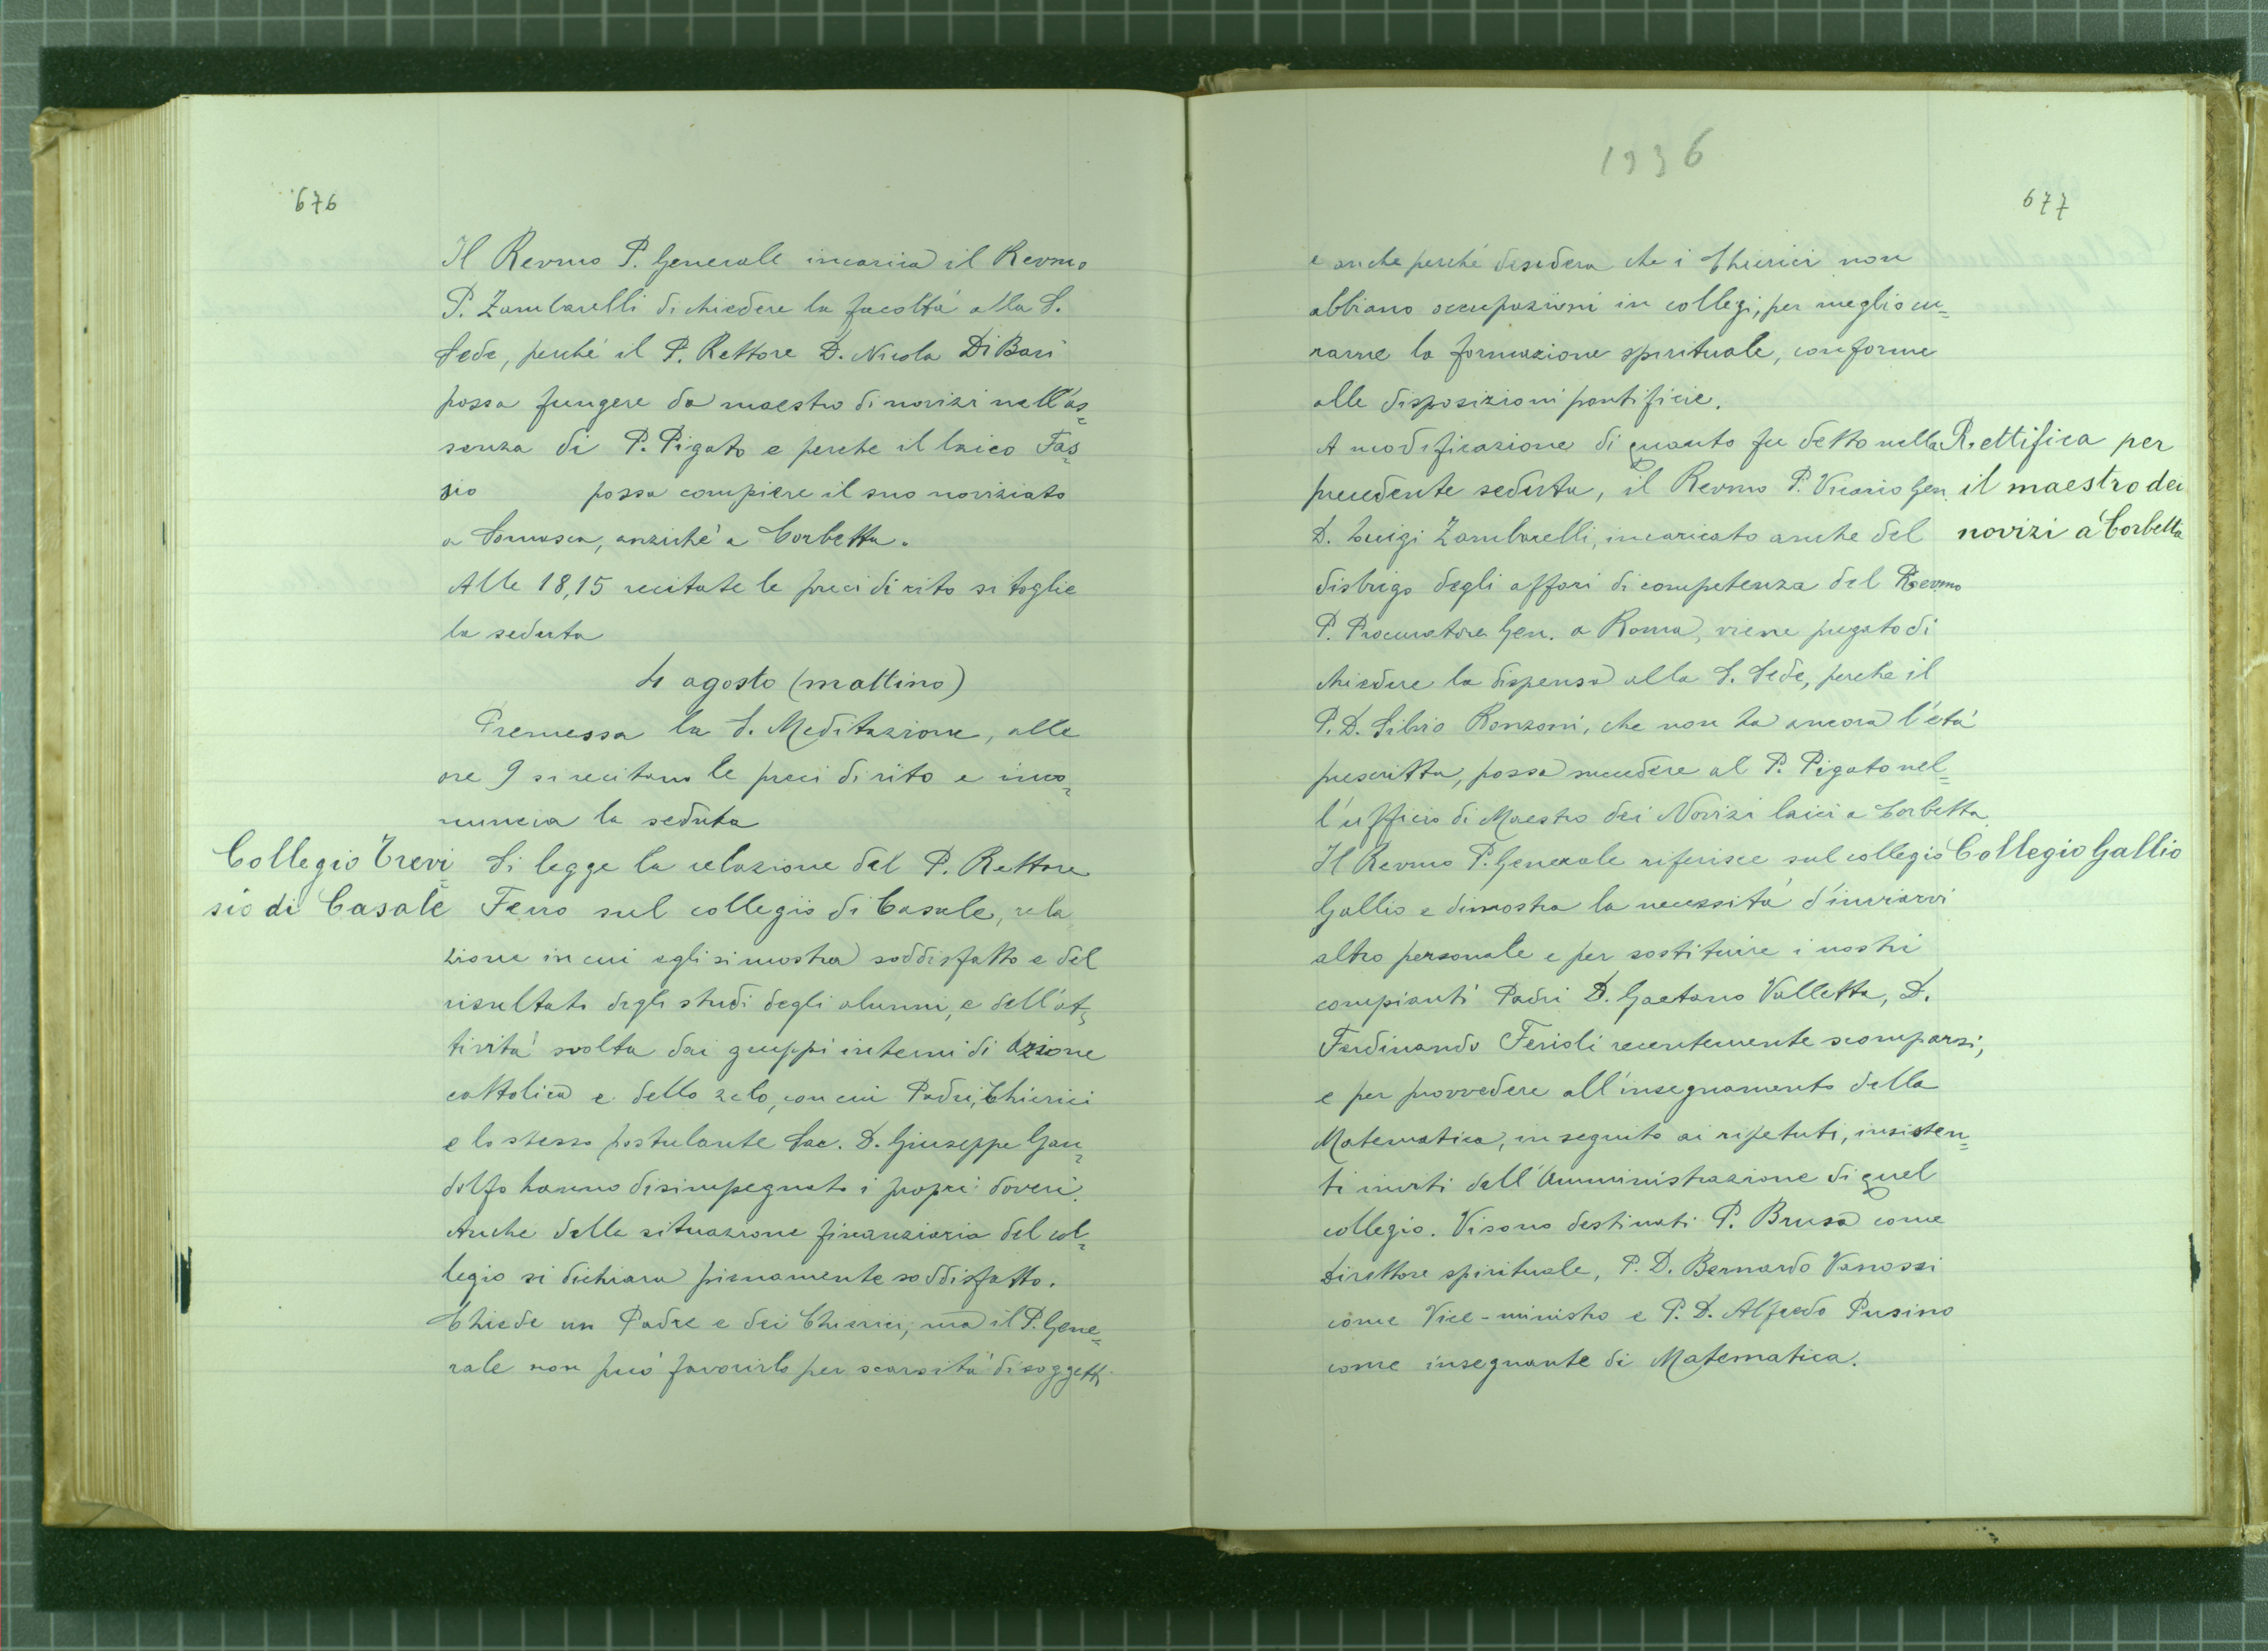 676
Il Revmo P. Generale incarica il Revmo
P. Zambarelli di chiedere la facoltà alla S.
Sede, perché il P. Rettore D. Nicola Di Bari
possa fungere da maestro di novizi nell'as=
senza di P. Pigato e perche il laico Fas=
sio possa compiere il suo noviziato
a Somasca, anziché a Corbetta.
Alle 18,15 recitate le preci di rito si toglie
la seduta
4 agosto (mattino)
Premessa la S. Meditazione, alle
ore 9 si recitano le preci di rito e inco=
mincia la seduta
Collegio Trevi=
sio di Casale
Si legge la relazione del P. Rettore
Ferro sul collegio di Casale, rela
zione in cui egli si mostra soddisfatto e del
risultato degli studi degli alunni, e dell'at=
tività svolta dai gruppi interni di Azione
cattolica e dello zelo, con cui Padri, Chierici
e lo stesso postulante Sac. D. Giuseppe Gan=
dolfo hanno disimpegnato i propri doveri.
Anche della situazione finanziaria del col=
legio si dichiara pienamente soddisfatto.
Chiede un Padre e dei Chierici, ma il P. Gene=
rale non può favorirlo per scarsità di soggetti
1936
677
e anche perché desidera che i Chierici non
abbiano occupazioni in collegi, per meglio cu=
rarne la formazione spirituale, conforme
alle disposizioni pontificie.
A modificazione di quanto fu detto nella
precedente seduta, il Revmo P. Vicario Gen.
D. Luigi Zambarelli, incaricato anche del
disbrigo degli affari di competenza del Revmo
P. Procuratore Gen. a Roma, viene pregato di
chiedere la dispensa alla S. Sede, perche il
P. D. Silvio Ronzoni, che non ha ancora l'età
prescritta, possa succedere al P. Pigato nel=
l'ufficio di Maestro dei Novizi laici a Corbetta.
Rettifica per
il maestro dei
novizi a Corbetta
Il Revmo P. Generale riferisce sul collegio
Gallio e dimostra la necessità d'inviarvi
altro personale e per sostituire i nostri
compianti Padri D. Gaetano Valletta, D.
Ferdinando Ferioli recentemente scomparsi,
e per provvedere all'insegnamento della
Matematica, in seguito ai ripetuti, insisten=
ti inviti dell'Amministrazione di quel
collegio. Vi sono destinati P. Brusa come
Direttore spirituale, P. D. Bernardo Vanossi
come Vice-ministro e P. D. Alfredo Pusino
come insegnante di Matematica.
Collegio Gallio